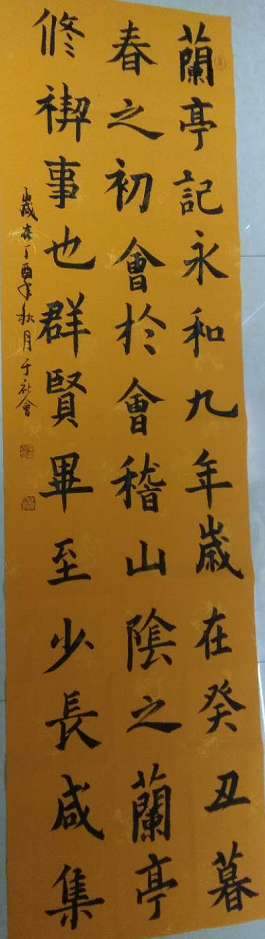 蘭亭記永和九年歲在癸丑暮
春之初會於會稽山陰之蘭亭
修禊事也群賢畢至少長咸集
歲在丁酉年秋月于社會